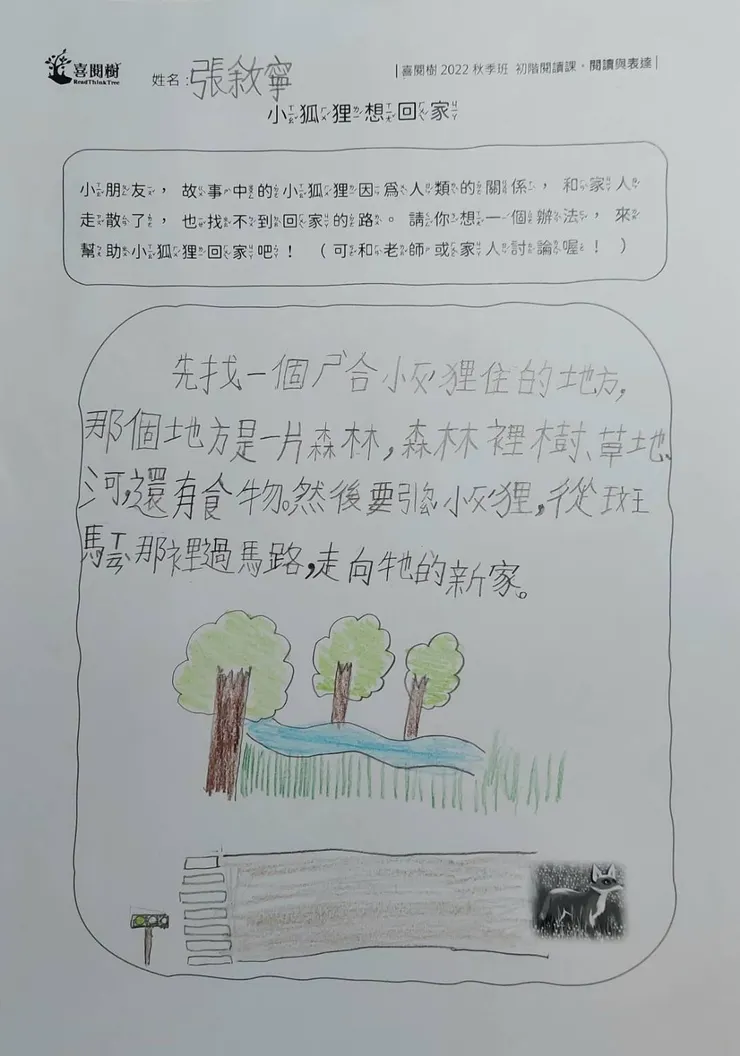 喜閱樹
ReadThinkTree
姓名：張敘寧
|喜閱樹 2022 秋季班 初階閱讀課・閱讀與表達|
小狐狸想回家
小朋友，故事中的小狐狸因為人類的關係，和家人
走散了，也找不到回家的路。請你想一個辦法，來
幫助小狐狸回家吧！（可和老師或家人討論喔！）
先找一個ㄕ合小灰狸住的地方，
那個地方是一片森林，森林裡樹、草地、
河，還有食物。然後要引小灰狸，從斑
馬那裡過馬路，走向牠的新家。